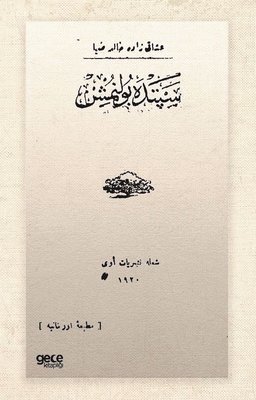 عشاقی زاده خالد ضیا
سپتده بولنمش
شعله نشریات أوی
١٩٢٠
[ مطبعۀ اورخانیه ]
gece
kitaplığı